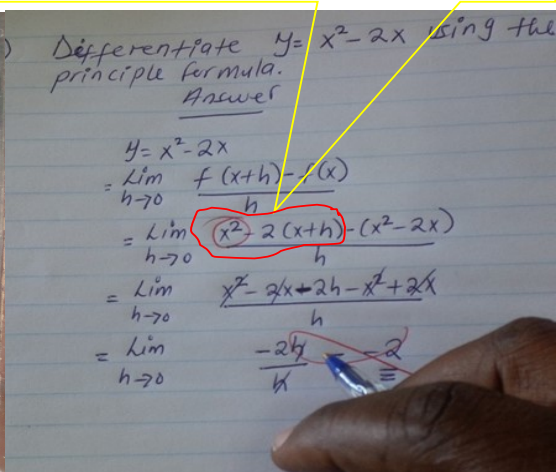 ) Differentiate y = x² - 2x using the
principle formula.
Answer
y = x² - 2x
= Lim h→0 f(x+h) - f(x) / h
= Lim h→0 x² - 2(x+h) - (x² - 2x) / h
= Lim h→0 x² - 2x - 2h - x² + 2x / h
= Lim h→0 -2h / h = -2